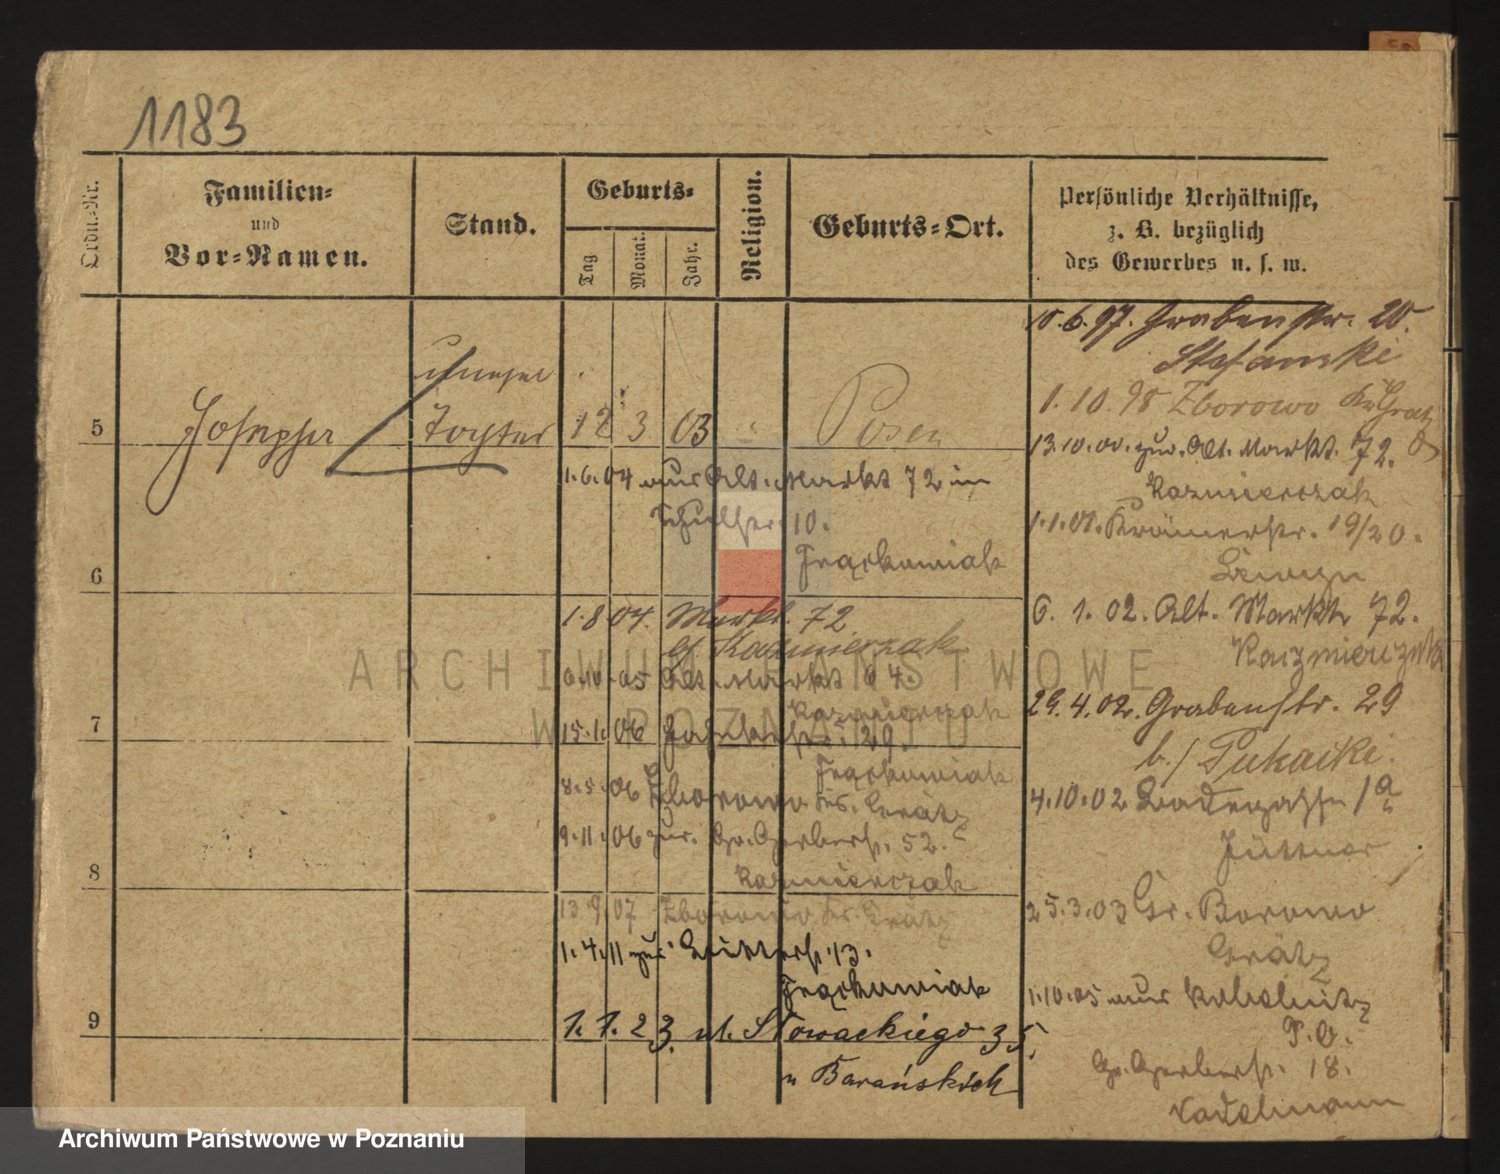 1183
Ordn.-Nr.
Familien-
und
Vor-Namen.
Stand.
Geburts-
Tag
Monat.
Jahr.
Religion.
Geburts-Ort.
Persönliche Verhältnisse,
z. B. bezüglich
des Gewerbes u. s. w.
5
Josepha
Tochter
12 3 03
Posen
1.6.04 aus Alt. Markt 72 in
10.
Frąckowiak
6
1.8.04. Markt. 72
Kazmierczak
05 Alt. Markt 64.
Kazmierczak
7
15.1.06 29.
Frąckowiak
8.5.06 Zborowo Kr. Grätz
9.11.06 zur. Gr. Gerberstr. 52.
Kazmierczak
8
13.9.07 Zborowo Kr. Grätz
1.4.11 zur 13.
Frąckowiak
9
1.1.23. ul. Słowackiego 35.
u Barańskich
10.6.97. Grabenstr. 20.
Stefanski
1.10.98 Zborowo Kr. Grätz
13.10.00. zur. Alt. Markt. 72.
Kazmierczak
1.1.01. Krämerstr. 19/20.
6.1.02. Alt. Markt 72.
Kazmierczak
29.4.02. Grabenstr. 29
b./ Pukacki.
4.10.02 1a
Jüttner
25.3.03 Gr. Borowo
Grätz
1.10.05 aus
P. O.
Gr. Gerberstr. 18.
Kadelmann
ARCHIWUM PAŃSTWOWE
W POZNANIU
Archiwum Państwowe w Poznaniu